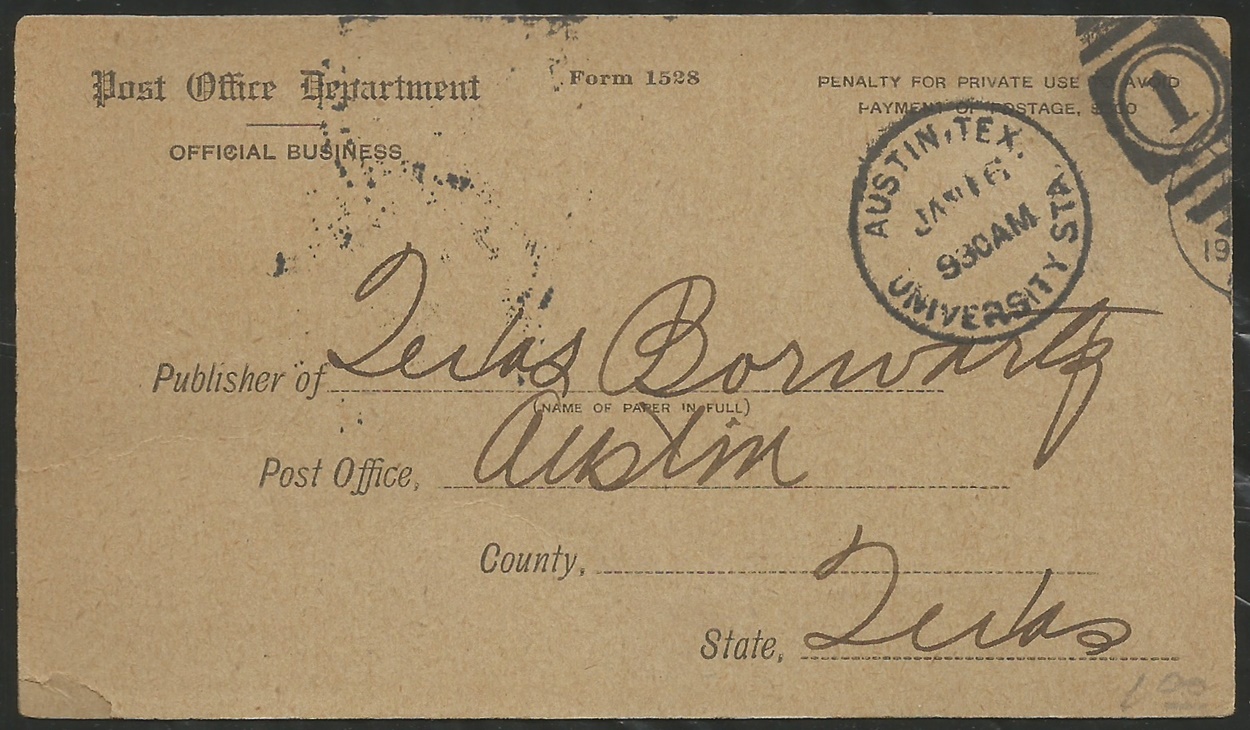 Post Office Department
Form 1528
PENALTY FOR PRIVATE USE AVOID
PAYMENT OF POSTAGE,
OFFICIAL BUSINESS
1
AUSTIN, TEX.
JAN 16
930AM
UNIVERSITY STA
19
Publisher of Texas Borwarts
(NAME OF PAPER IN FULL)
Post Office, Austin
County,
State, Texas